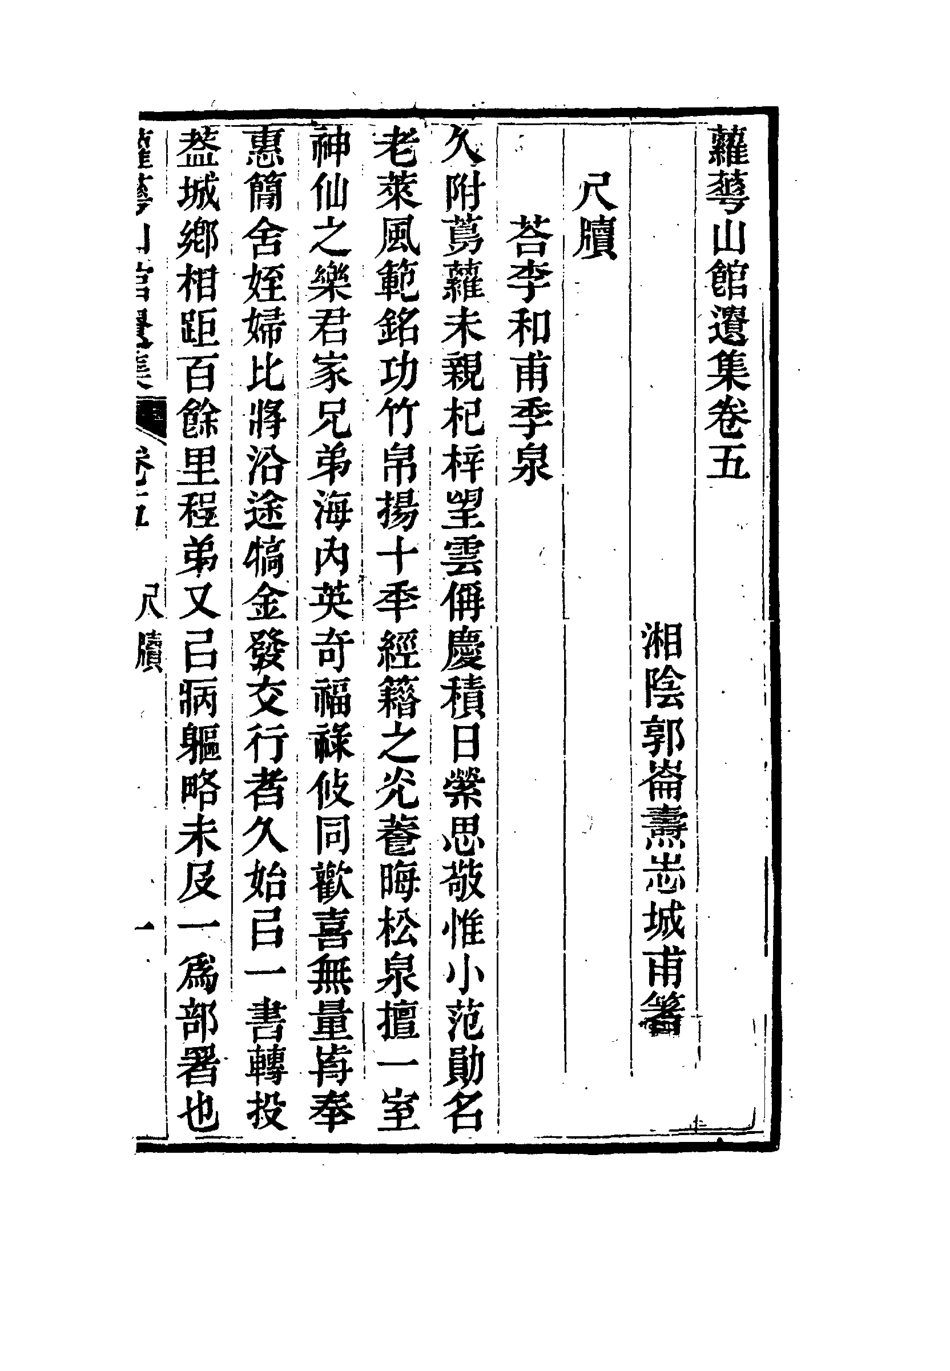 蘿蕚山館遺集卷五
湘陰郭崙燾志城甫箸
尺牘
荅李和甫季泉
久附蔦蘿未親杞梓朢雲偁慶積日縈思敬惟小范勛名
老萊風範銘功竹帛揚十秊經籍之光養晦松泉擅一室
神仙之樂君家兄弟海內英奇福祿攸同歡喜無量歬奉
惠簡舍姪婦比將沿途犒金發交行者久始㠯一書轉投
葢城鄉相距百餘里程弟又㠯病軀略未及一爲部署也
蘿蕚山館遺集 卷五 尺牘 一